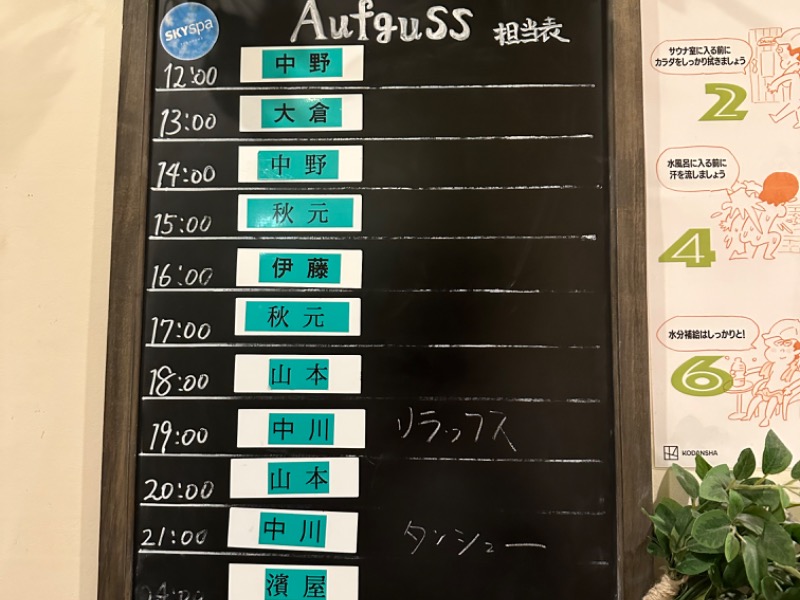 SKYSpa
Aufguss 担当表
12:00 中野
13:00 大倉
14:00 中野
15:00 秋元
16:00 伊藤
17:00 秋元
18:00 山本
19:00 中川 リラックス
20:00 山本
21:00 中川 タンシュー
濱屋
サウナ室に入る前に
カラダをしっかり拭きましょう
2
水風呂に入る前に
汗を流しましょう
4
水分補給はしっかりと!
6
KODANSHA